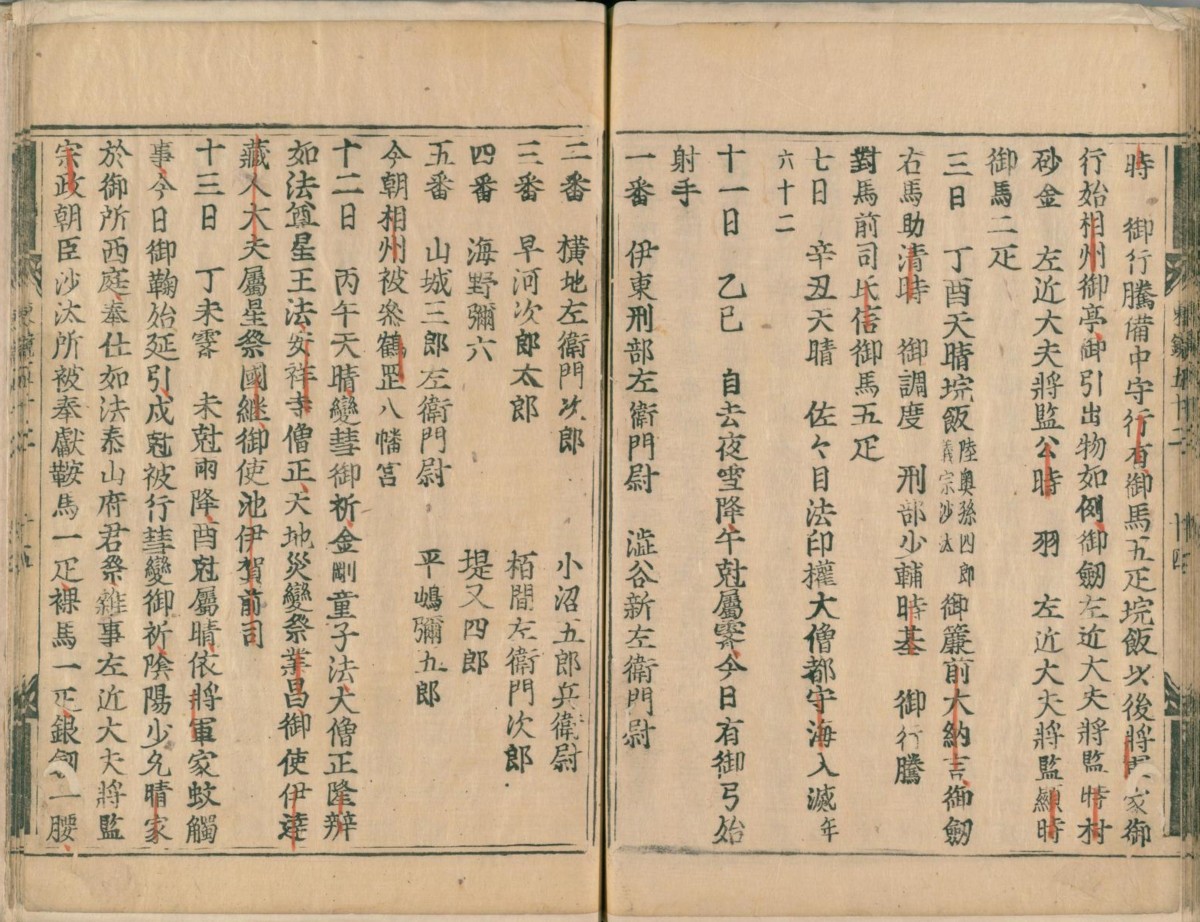 時　御行騰備中守行有御馬五疋垸飯以後將軍家御
行始相州御亭御引出物如例御劔左近大夫將監時村
砂金　左近大夫將監公時　羽　左近大夫將監顯時
御馬二疋
三日　丁酉天晴垸飯陸奥孫四郎義宗沙汰御簾前大納言御劔
右馬助清時　御調度　刑部少輔時基　御行騰
對馬前司氏信御馬五疋
七日　辛丑天晴　佐々目法印權大僧都守海入滅年
六十二
十一日　乙巳　自去夜雪降午尅屬霽今日有御弓始
射手
一番　伊東刑部左衛門尉　澁谷新左衛門尉
二番　橫地左衛門次郎　小沼五郎兵衛尉
三番　早河次郎太郎　栢間左衛門次郎
四番　海野彌六　堤又四郎
五番　山城三郎左衛門尉　平嶋彌五郎
今朝相州被參鶴罡八幡宮
十二日　丙午天晴變彗御祈金剛童子法大僧正隆辨
如法尊星王法安祥寺僧正天地災變祭業昌御使伊達
藏人大夫屬星祭國継御使池伊賀前司
十三日　丁未霽　未尅雨降酉尅屬晴依將軍家蚊觸
事今日御鞠始延引戍尅被行彗變御祈陰陽少允晴家
於御所西庭奉仕如法泰山府君祭雜事左近大夫將監
宗政朝臣沙汰所被奉獻鞍馬一疋裸馬一疋銀劔一腰